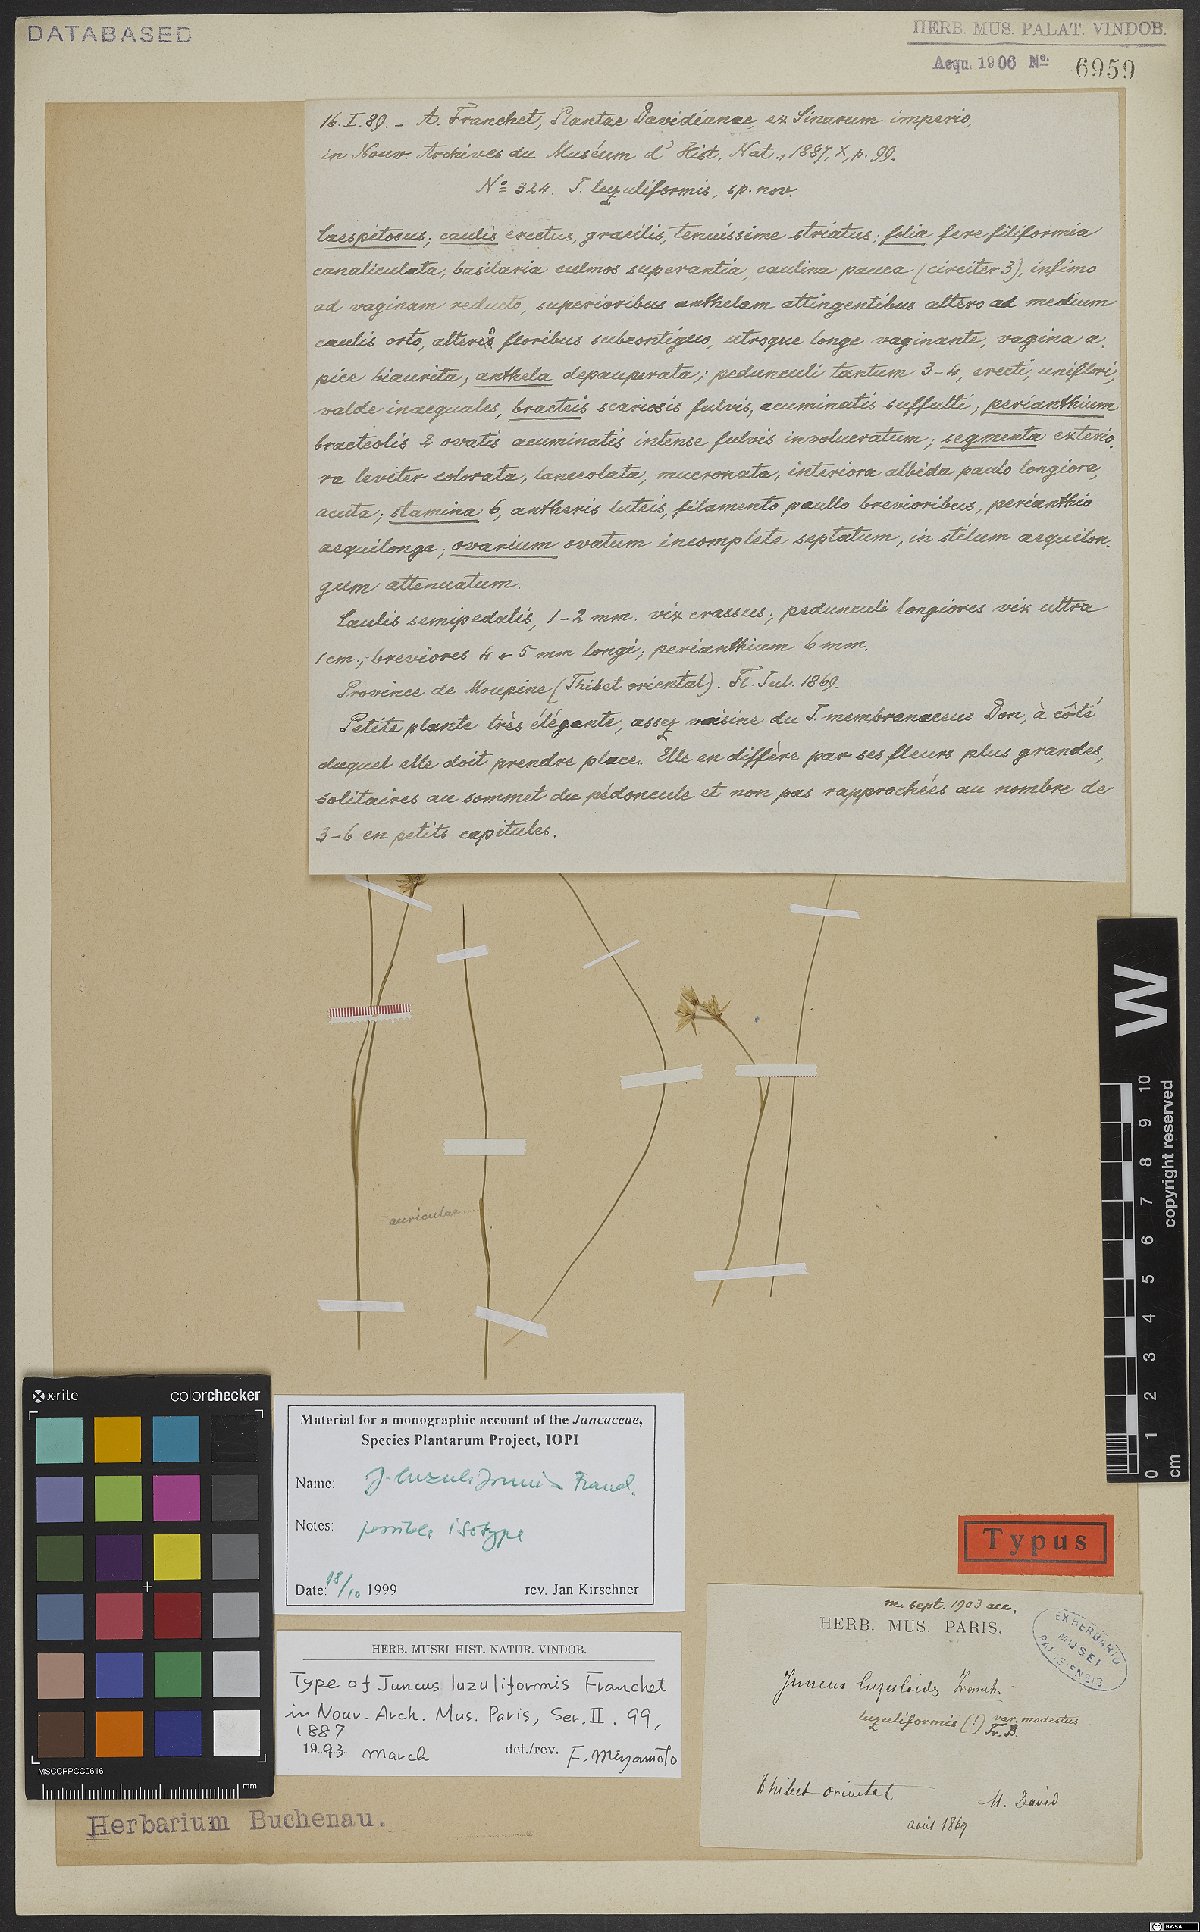 DATABASED
HERB. MUS. PALAT. VINDOB.
Acqu. 1906 No. 6959
16.I.89. – A. Franchet, Plantae Davidianae ex Sinarum imperio,
in Nouv. Archives du Muséum d'Hist. Nat., 1887, X, p. 99.
No 324. J. luzuliformis, sp. nov.
Caespitosus; caulis erectus, gracilis, tenuissime striatus; folia fere filiformia
canaliculata; basilaria culmos superantia, caulina pauca (circiter 3), infimo
ad vaginam reducto, superioribus anthelam attingentibus altero ad medium
caulis orto, altero floribus subcontiguo, utroque longe vaginante, vagina a-
pice biaurita; anthela depauperata; pedunculi tantum 3-4, erecti, uniflori,
valde inaequales, bracteis scariosis fulvis, acuminatis suffulti; perianthium
bracteolis 2 ovatis acuminatis intense fulvis involucratum; segmenta exterio-
ra leviter colorata, lanceolata, mucronata, interiora albida paulo longiora,
acuta; stamina 6, antheris luteis, filamento paullo brevioribus, perianthio
aequilonga; ovarium ovatum incomplete septatum, in stilum aequilon-
gum attenuatum.
Caulis semipedalis, 1-2 mm. vix crassus; pedunculi longiores vix ultra
1 cm.; breviores 4 v 5 mm longi; perianthium 6 mm.
Province de Moupine (Thibet oriental). Fl. Jul. 1869.
Petite plante très élégante, assez voisine du J. membranaceus Don, à côté
duquel elle doit prendre place. Elle en diffère par ses fleurs plus grandes,
solitaires au sommet du pédoncule et non pas rapprochées au nombre de
3-6 en petits capitules.
auriculae
W
0 1 2 3 4 5 6 7 8 9 10
cm
copyright reserved
x-rite
colorchecker
MSCCPPCC0616
mm
Material for a monographic account of the Juncaceae,
Species Plantarum Project, IOPI
Name: J. luzuliformis Franch.
Notes: possible isotype
Date: 18/10 1999 rev. Jan Kirschner
HERB. MUSEI HIST. NATUR. VINDOB.
Type of Juncus luzuliformis Franchet
in Nouv. Arch. Mus. Paris, Ser. II. 99,
1887
1993 March det./rev. F. Miyamoto
Herbarium Buchenau.
Typus
m. sept. 1903 acc.
HERB. MUS. PARIS.
EX HERBARIO
MUSEI
PARISIENSIS
Juncus luzuloides Franch.
luzuliformis (!) var. modestus
Fr. B.
Thibet oriental.
M. David
août 1869